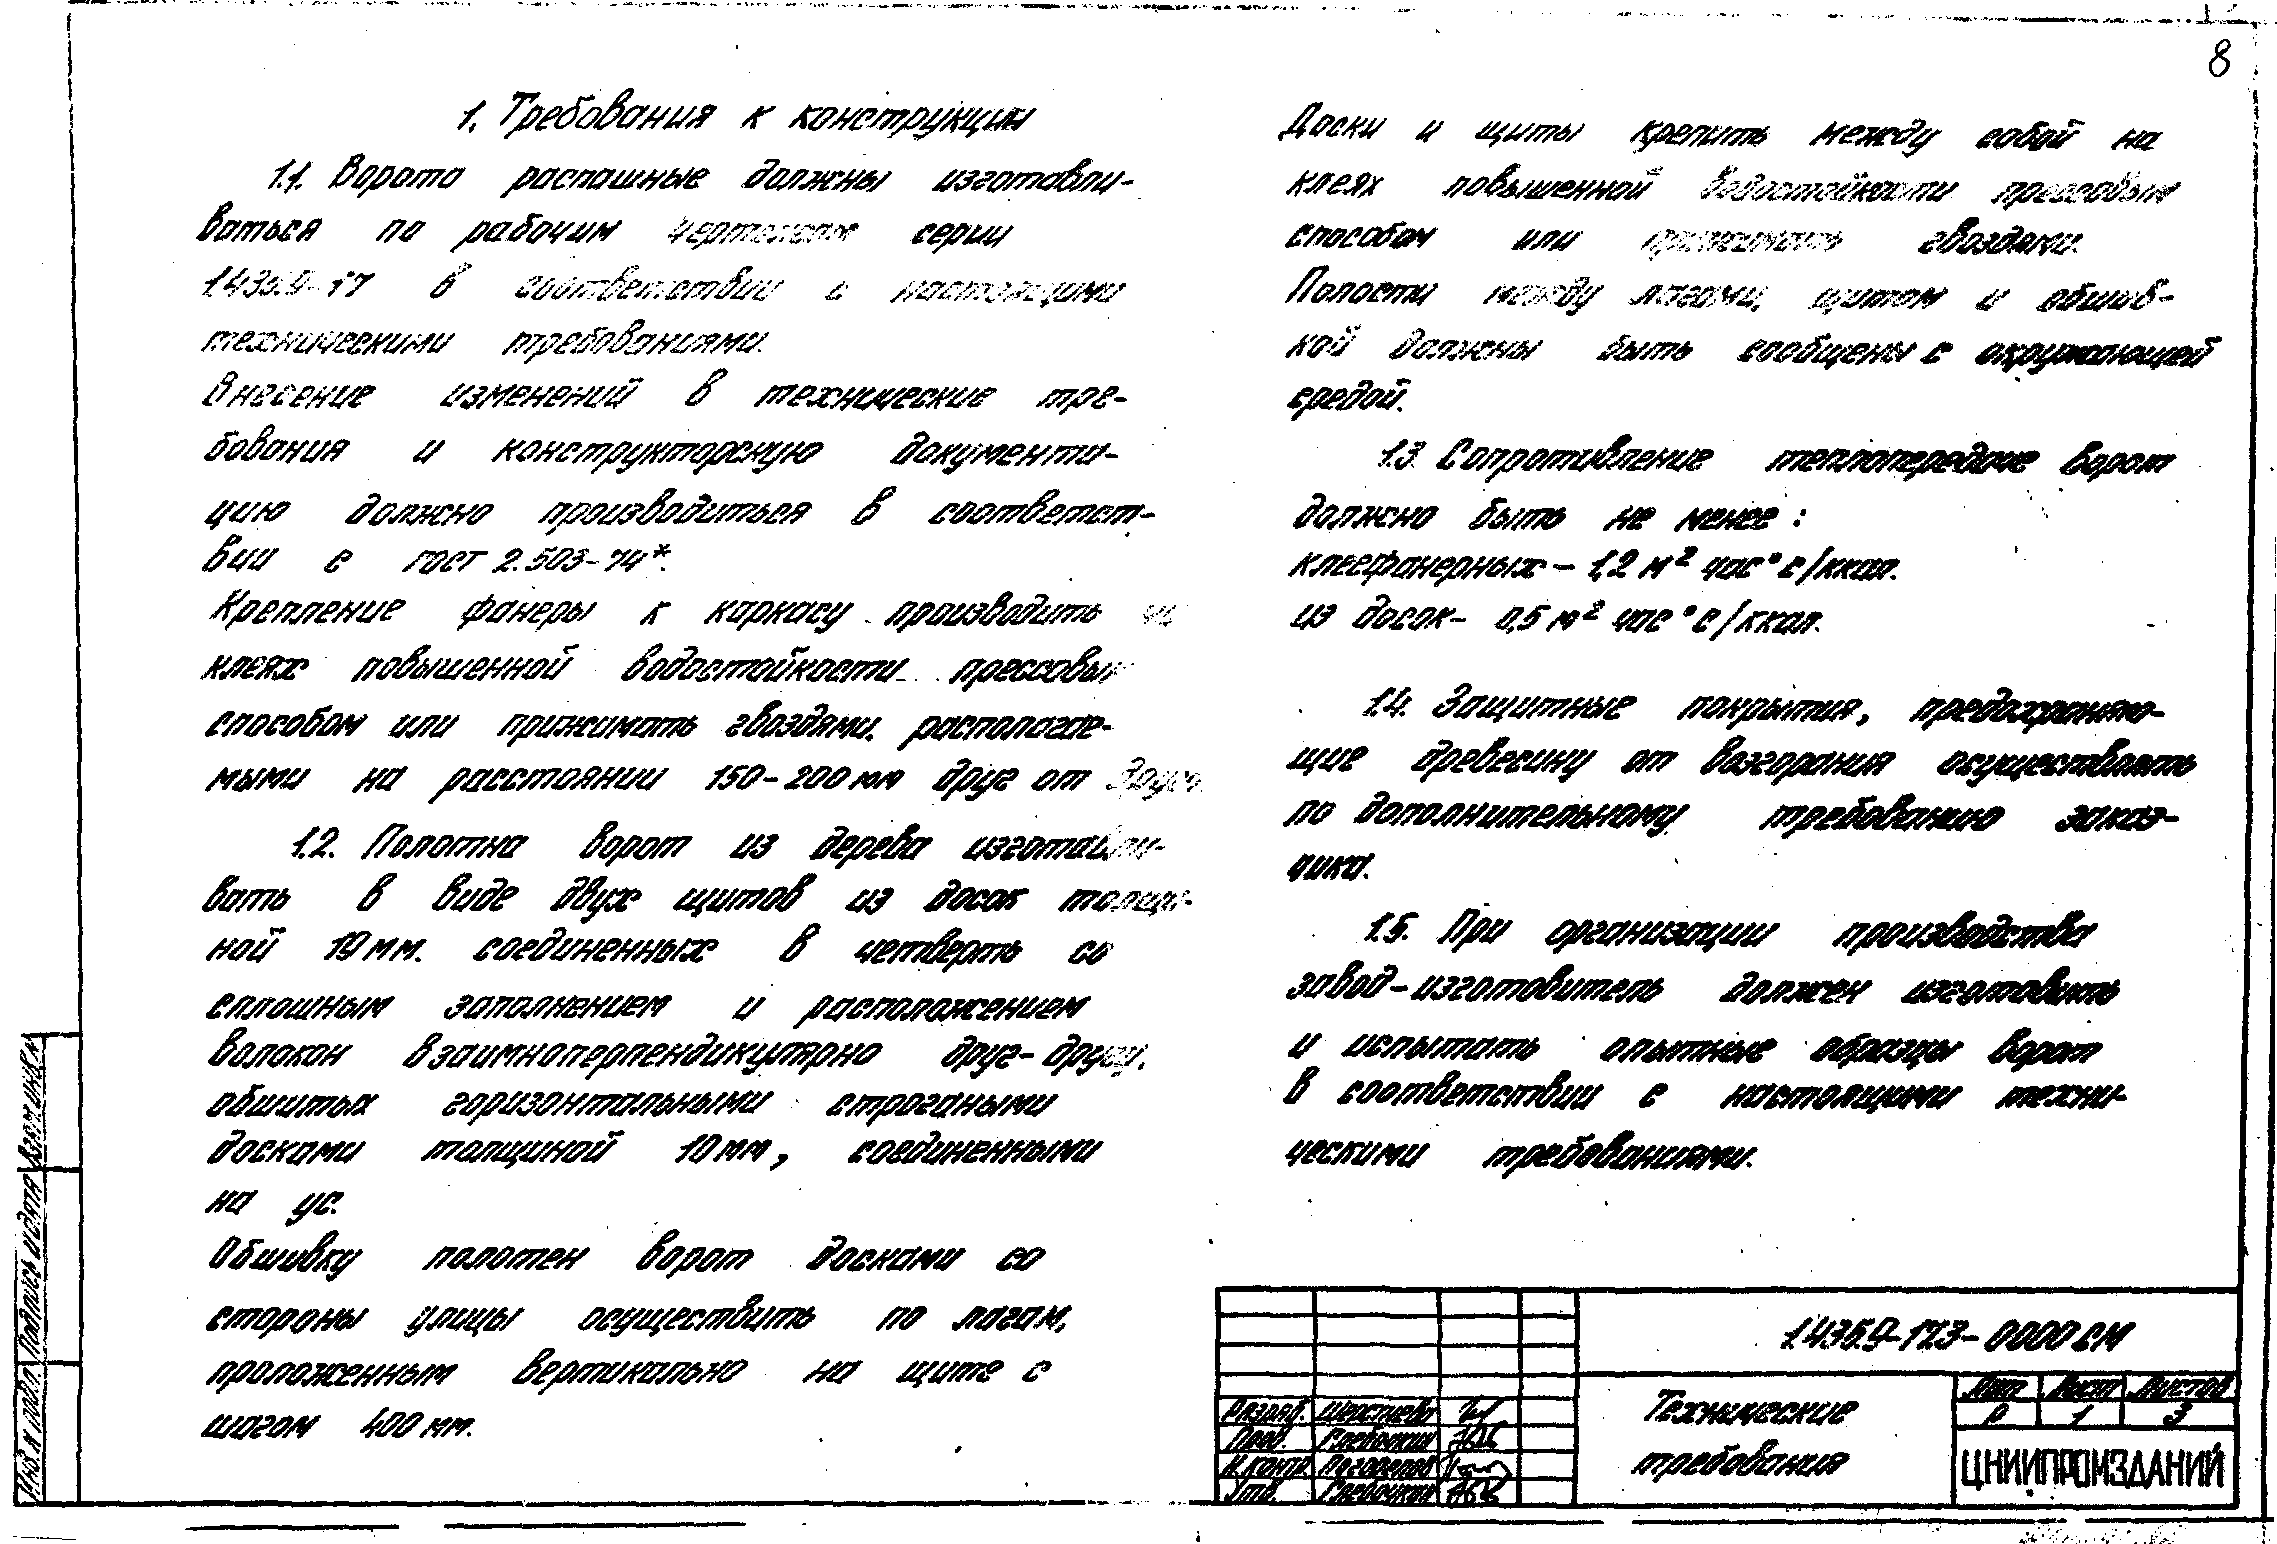 8
1. Требования к конструкции
1.1. Ворота распашные должны изготавли-
ваться по рабочим чертежам серии
1.435.9-17 в соответствии с настоящими
техническими требованиями.
Внесение изменений в технические тре-
бования и конструкторскую документа-
цию должно производиться в соответст-
вии с гост 2.503-74*.
Крепление фанеры к каркасу производить на
клеях повышенной водостойкости прессовым
способом или прижимать гвоздями, располагае-
мыми на расстоянии 150-200 мм друг от друга.
1.2. Полотна ворот из дерева изготавли-
вать в виде двух щитов из досок толщи-
ной 19 мм. соединенных в четверть со
сплошным заполнением и расположением
волокон взаимноперпендикулярно друг-другу,
обшитых горизонтальными строгаными
досками толщиной 19 мм, соединенными
на ус.
Обшивку полотен ворот досками со
стороны улицы осуществить по лагам,
проложенным вертикально на щите с
шагом 400 мм.
Доски и щиты крепить между собой на
клеях повышенной водостойкости прессовым
способом или прижимать гвоздями.
Полости между лагами, щитом и обшив-
кой должны быть сообщены с окружающей
средой.
1.3. Сопротивление теплопередаче ворот
должно быть не менее:
клеефанерных – 1,2 м² час °с/ккал.
из досок – 0,5 м² час °с/ккал.
1.4. Защитные покрытия, предохраняю-
щие древесину от возгорания осуществлять
по дополнительному требованию заказ-
чика.
1.5. При организации производства
завод-изготовитель должен изготовить
и испытать опытные образцы ворот
в соответствии с настоящими техни-
ческими требованиями.
1.435.9-17.3-0000 СМ
Технические
требования
Лит Лист Листов
Р 1 3
ЦНИИПРОМЗДАНИЙ
Разраб. Шерстнева
Пров. Слепочкин
Н.контр.
Утв. Слепочкин
Инв. № подл. Подпись и дата Взам. инв. №